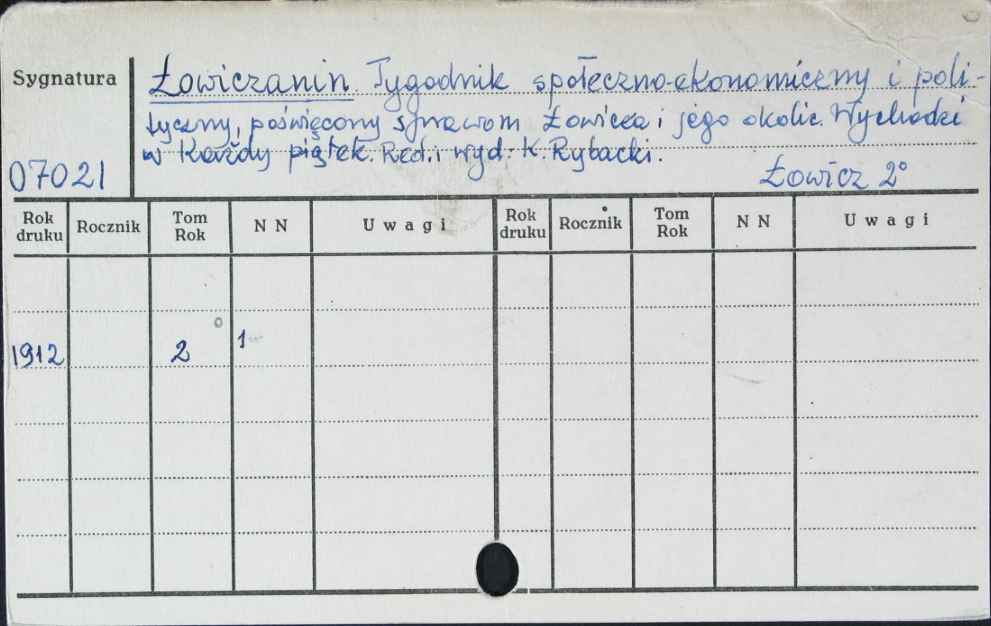 Sygnatura
Łowiczanin. Tygodnik społeczno-ekonomiczny i poli-
tyczny, poświęcony sprawom Łowicza i jego okolic. Wychodzi
w każdy piątek. Red. i wyd. K. Rybacki.
07021
Łowicz 2°
Rok druku Rocznik Tom Rok NN Uwagi Rok druku Rocznik Tom Rok NN Uwagi
1912 2 1